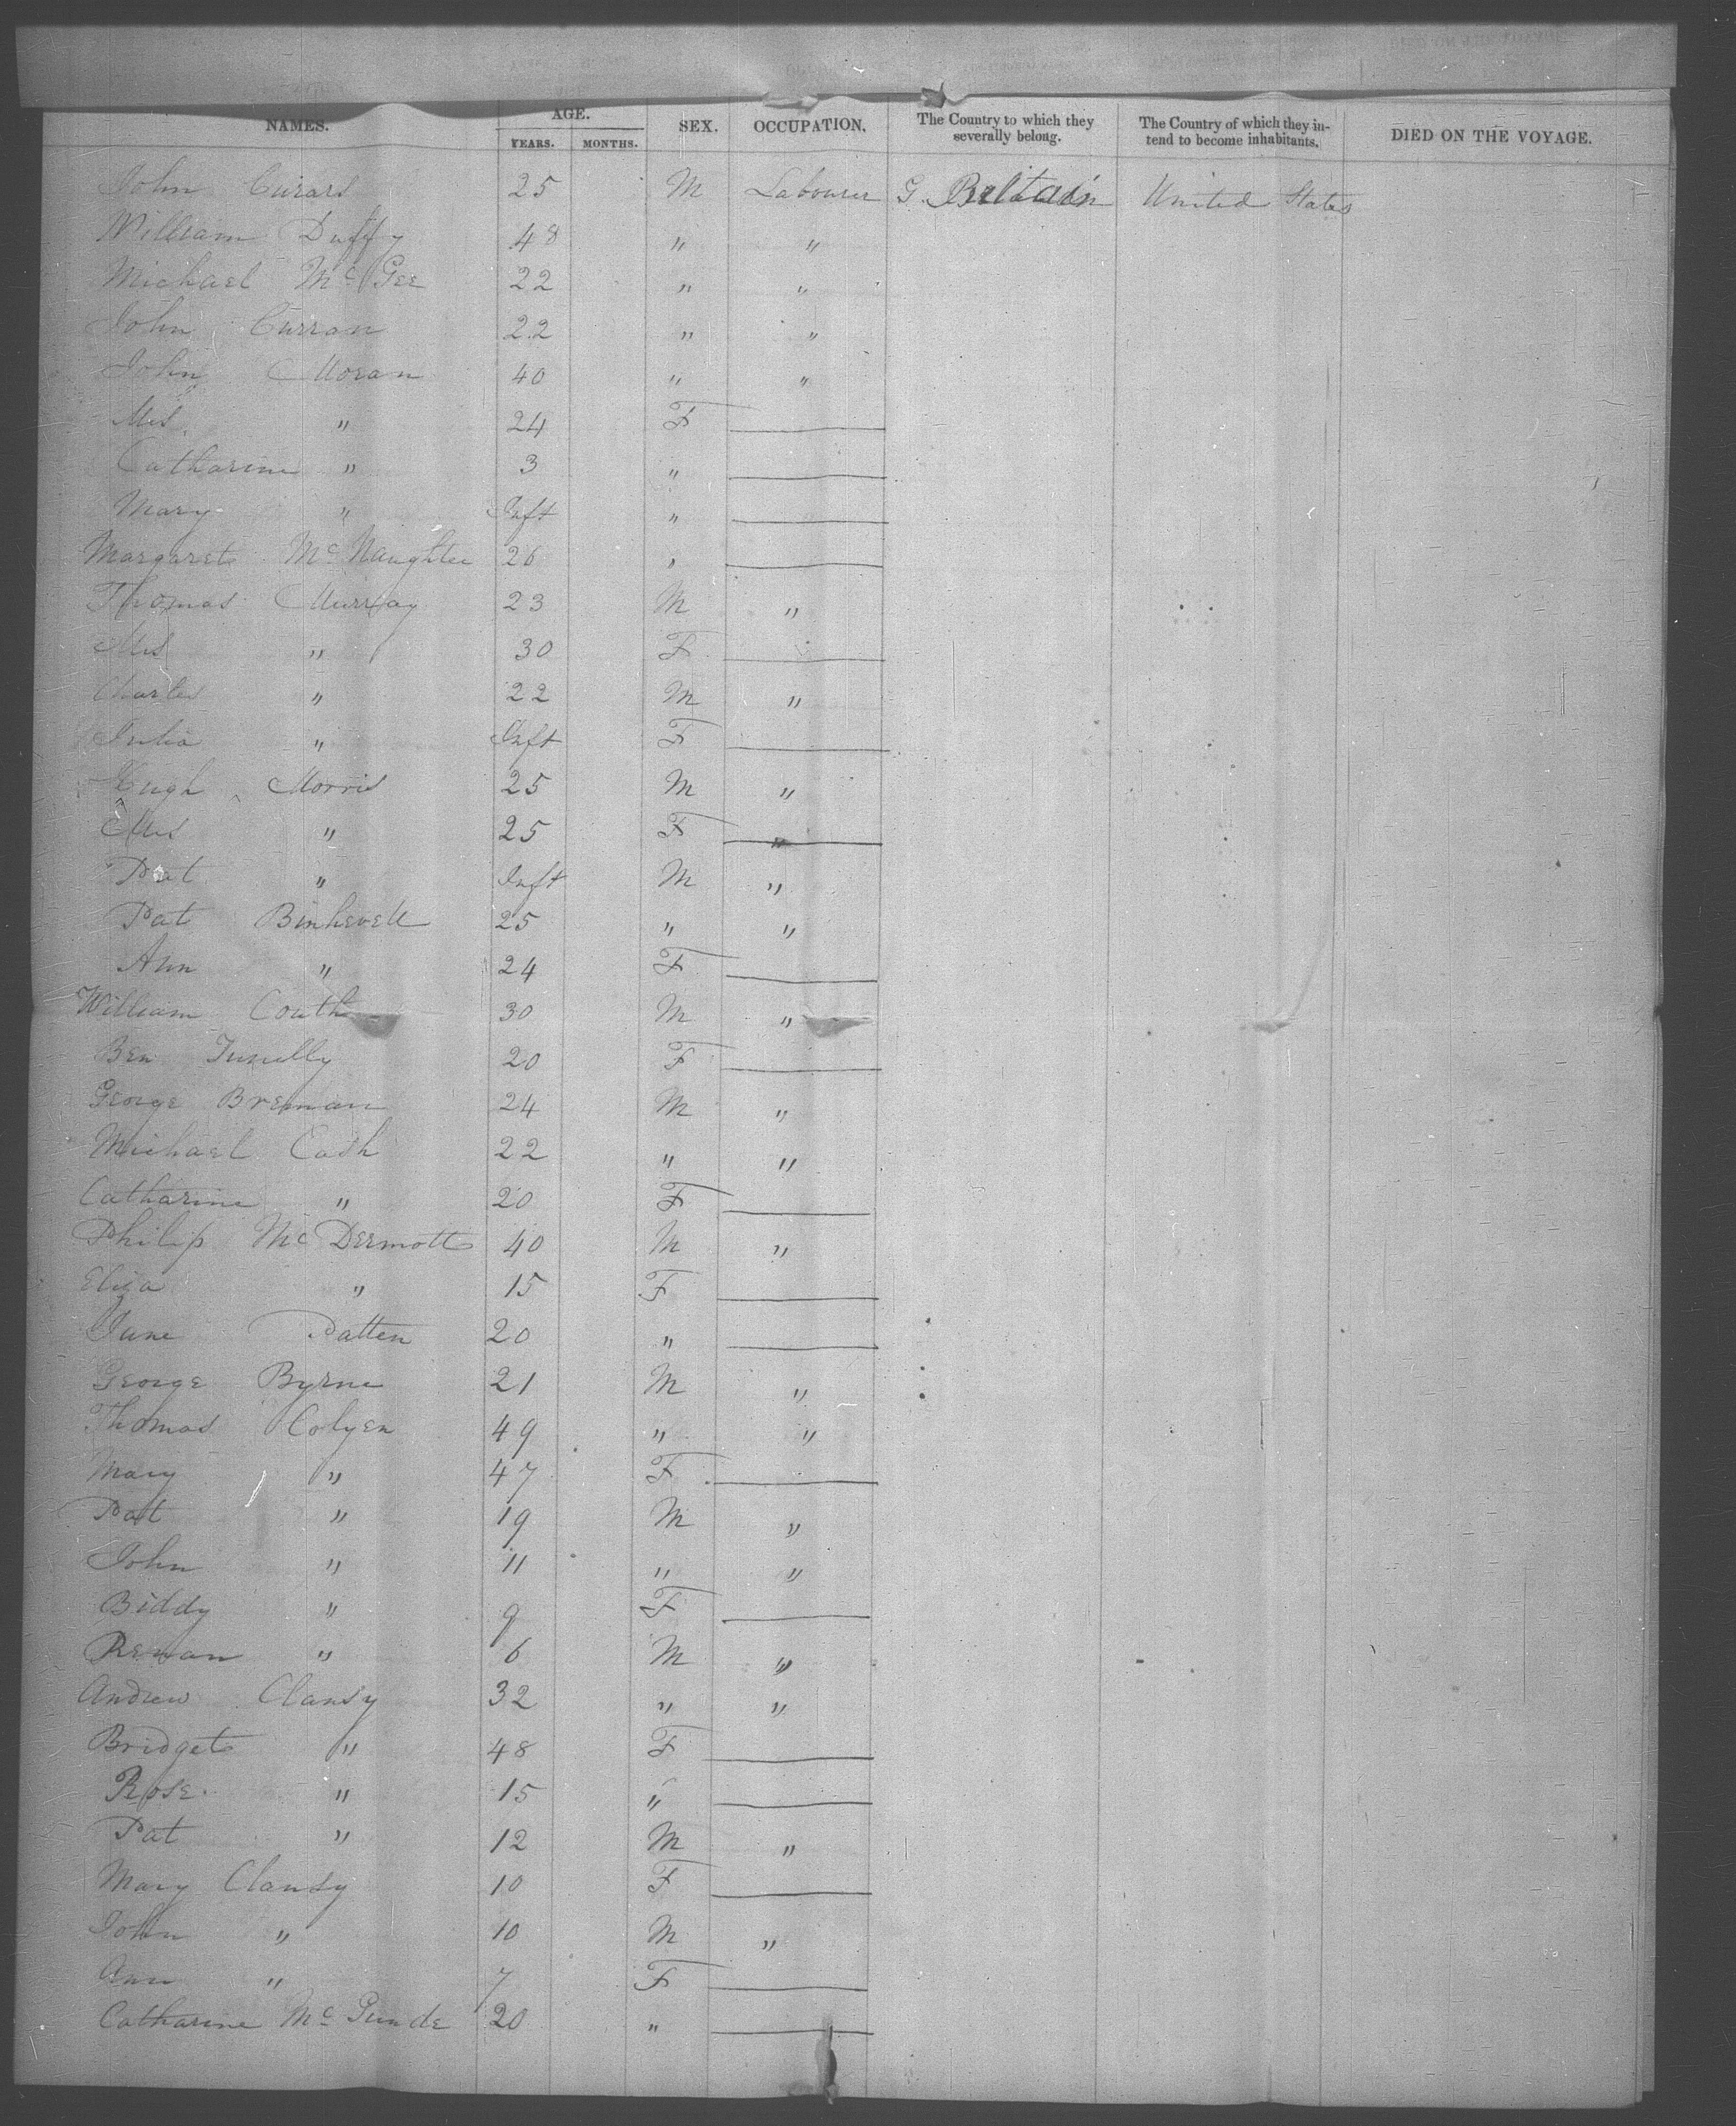 NAMES. AGE. YEARS. MONTHS. SEX. OCCUPATION. The Country to which they severally belong. The Country of which they intend to become inhabitants. DIED ON THE VOYAGE.
John 25 M Labourer G. Britain United States
William Duffy 48 " "
Michael Mc Gee 22 " "
John Curran 22 " "
John Moran 40 " "
Mrs " 24 F
Catharine " 3 "
Mary " Inft "
Margaret Mc Naughtee 26 "
Thomas Murray 23 M "
Mrs " 30 F
Charles " 22 M "
Julia " Inft F
Hugh Morris 25 M "
Mrs " 25 F "
Pat " Inft M "
Pat 25 " "
Ann " 24 F
William Couth 30 M "
Ben 20 F
George Brennan 24 M "
Michael Cash 22 " "
Catharine " 20 F
Philip Mc Dermott 40 M "
Eliza " 15 F
June Patten 20 "
George Byrne 21 M "
Thomas Colyen 49 " "
Mary " 47 F
Pat " 19 M "
John " 11 " "
Biddy " 9 F
" 6 M "
Andrew Clansy 32 " "
Bridget " 48 F
Rose " 15 "
Pat " 12 M "
Mary Clansy 10 F
John " 10 M "
Ann " 7 F
Catharine Mc 20 "